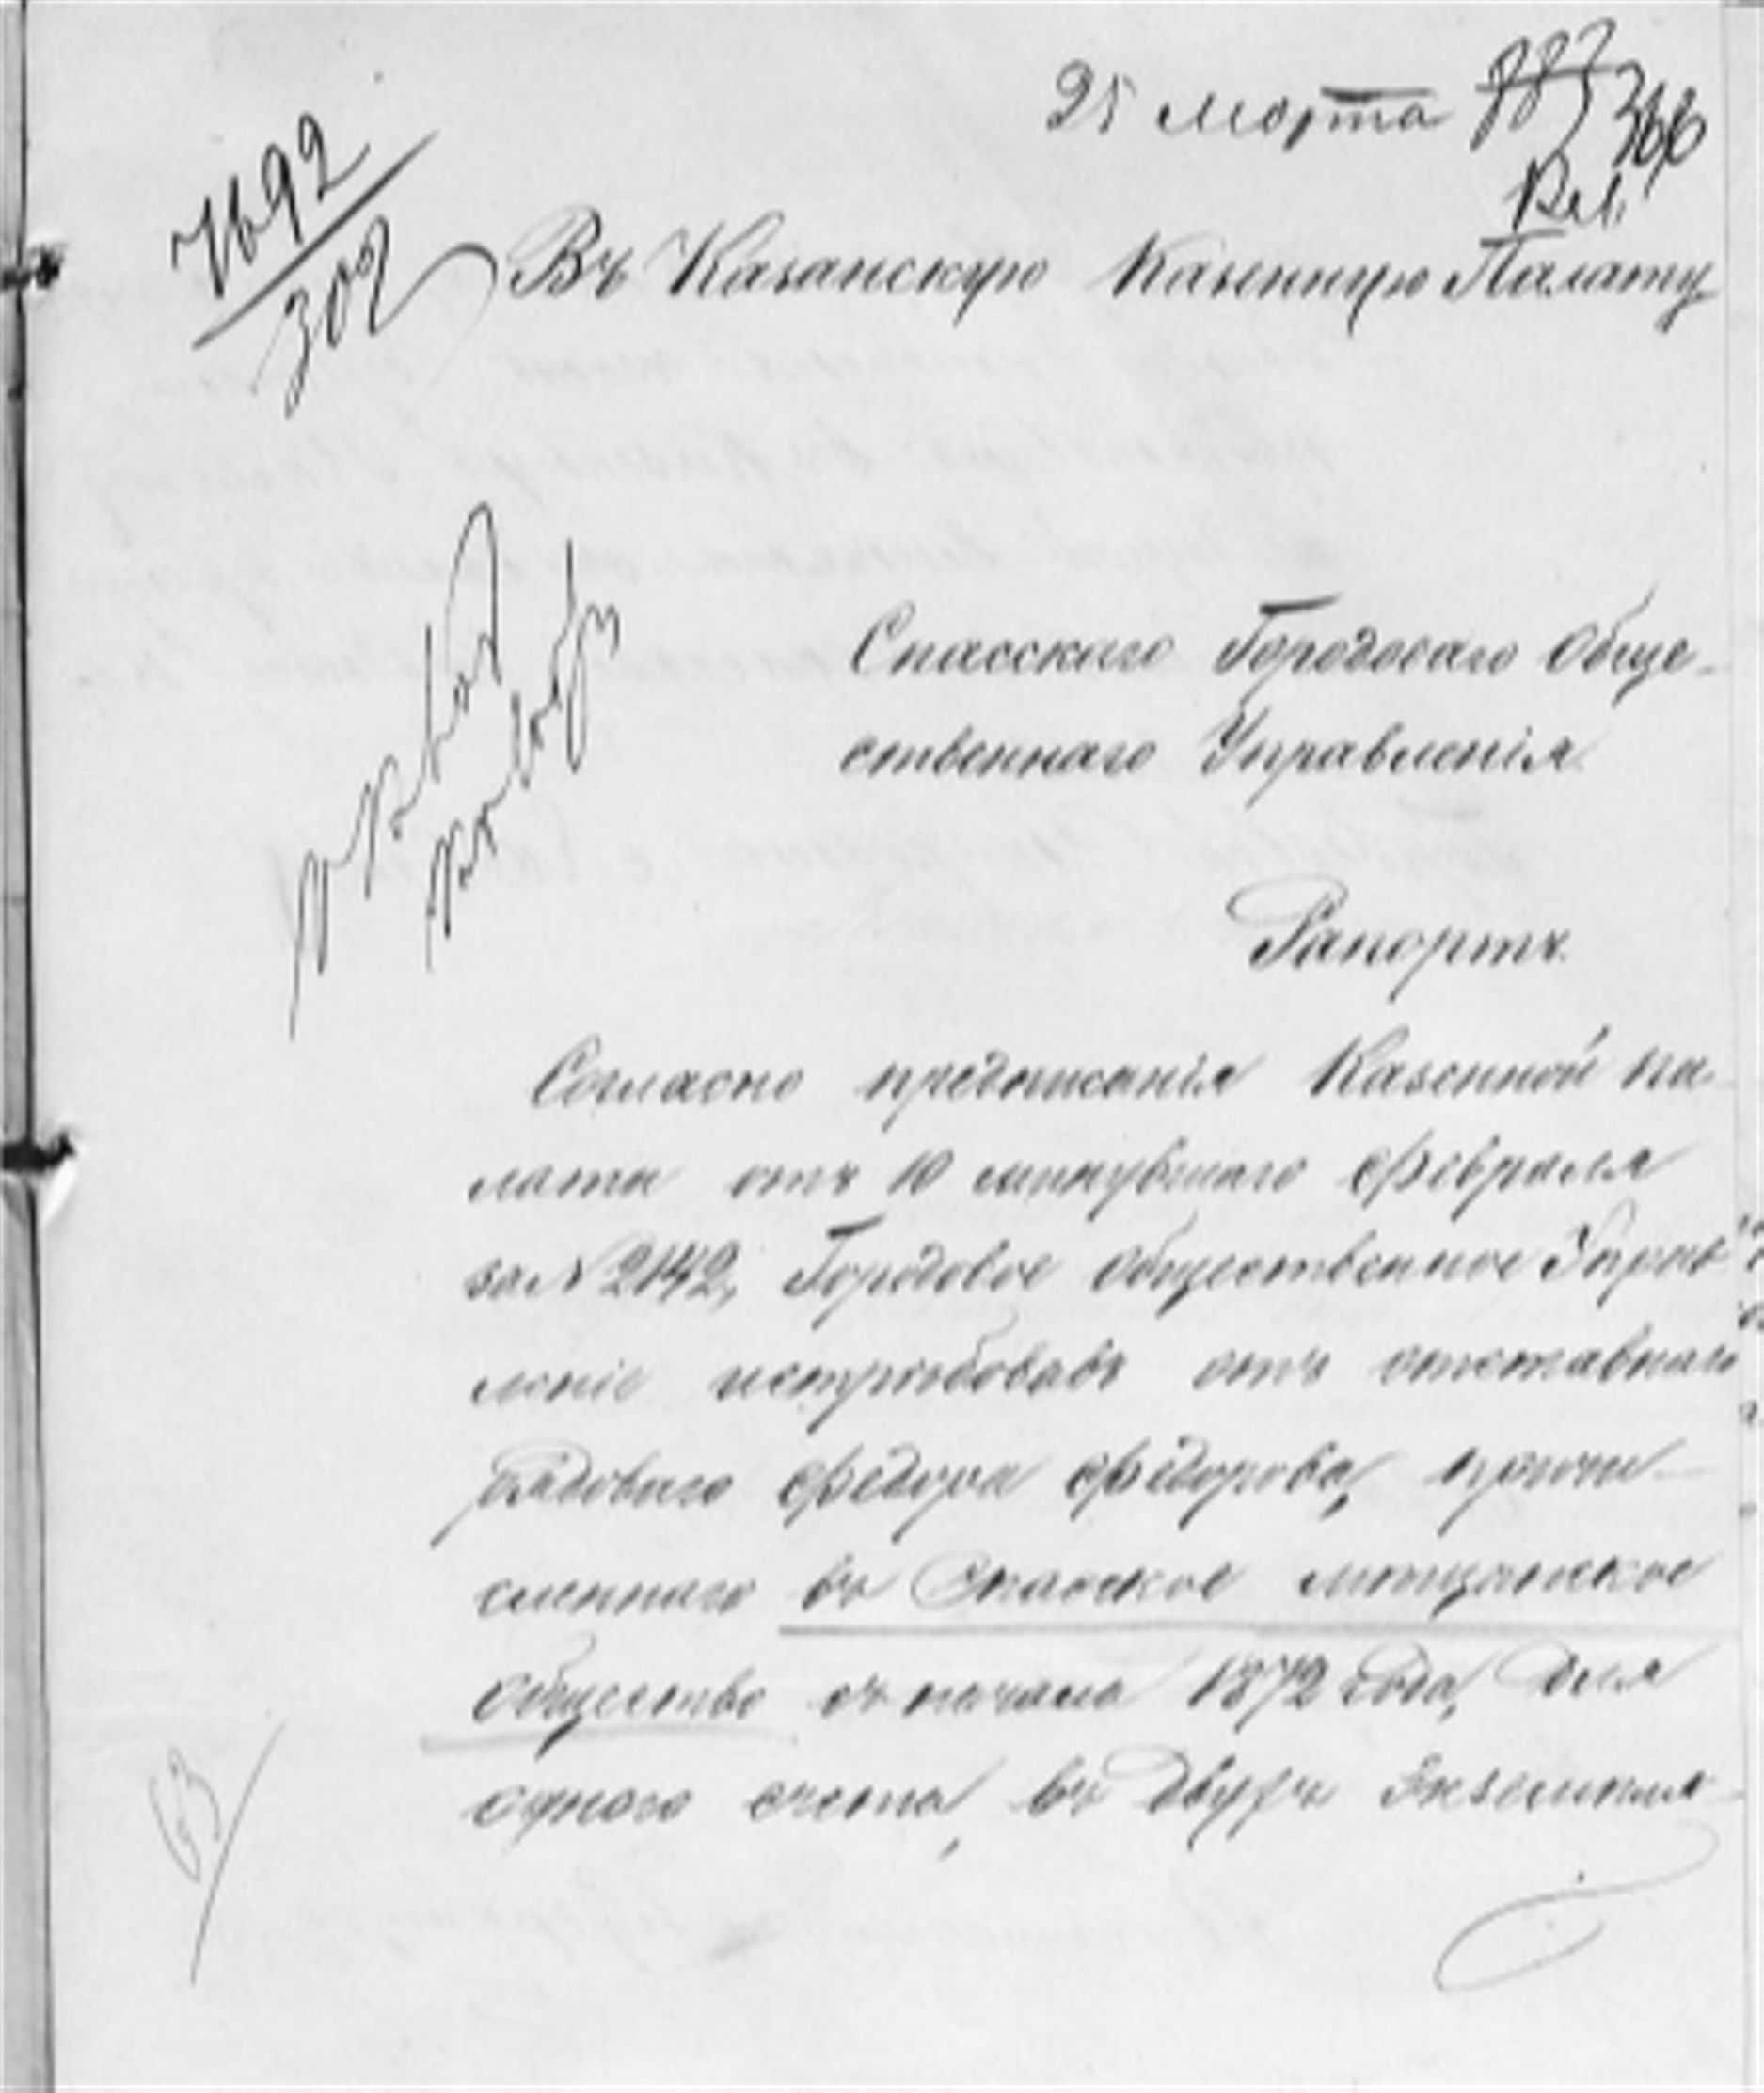 25 марта
366
7692
302
Въ Казанскую Казенную Палату
Спасскаго Городоваго Обще-
ственнаго Управленія.
Рапортъ.
Согласно предписанія Казенной па-
латы отъ 10 минувшаго февраля
за N 2142, Городовое Общественное Управ
леніе истребовавъ отъ отставнаго
рядоваго Федора Федорова, причи-
сленнаго въ Спаское мѣщанское
общество съ начала 1872 года, для
одного счета, въ двухъ экземпля-
63